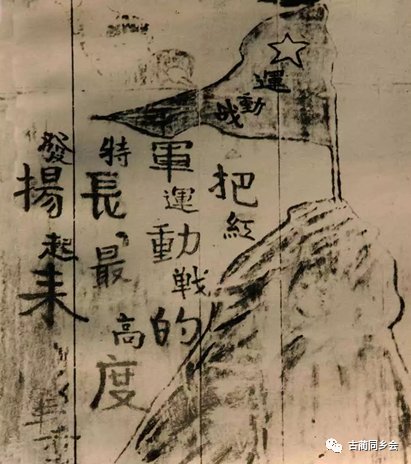 運動战
把紅
軍運動戦的
特長，最高度
發揚起来
古蔺同乡会